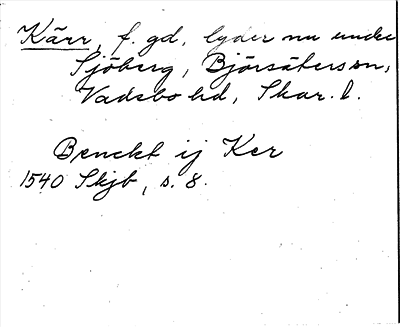 Kärr, f. gd, lyder nu under
Sjöberg, Björsäters sn,
Vadsbo hd, Skar. l.
Benckt ij Ker
1540 Skjb, s. 8.